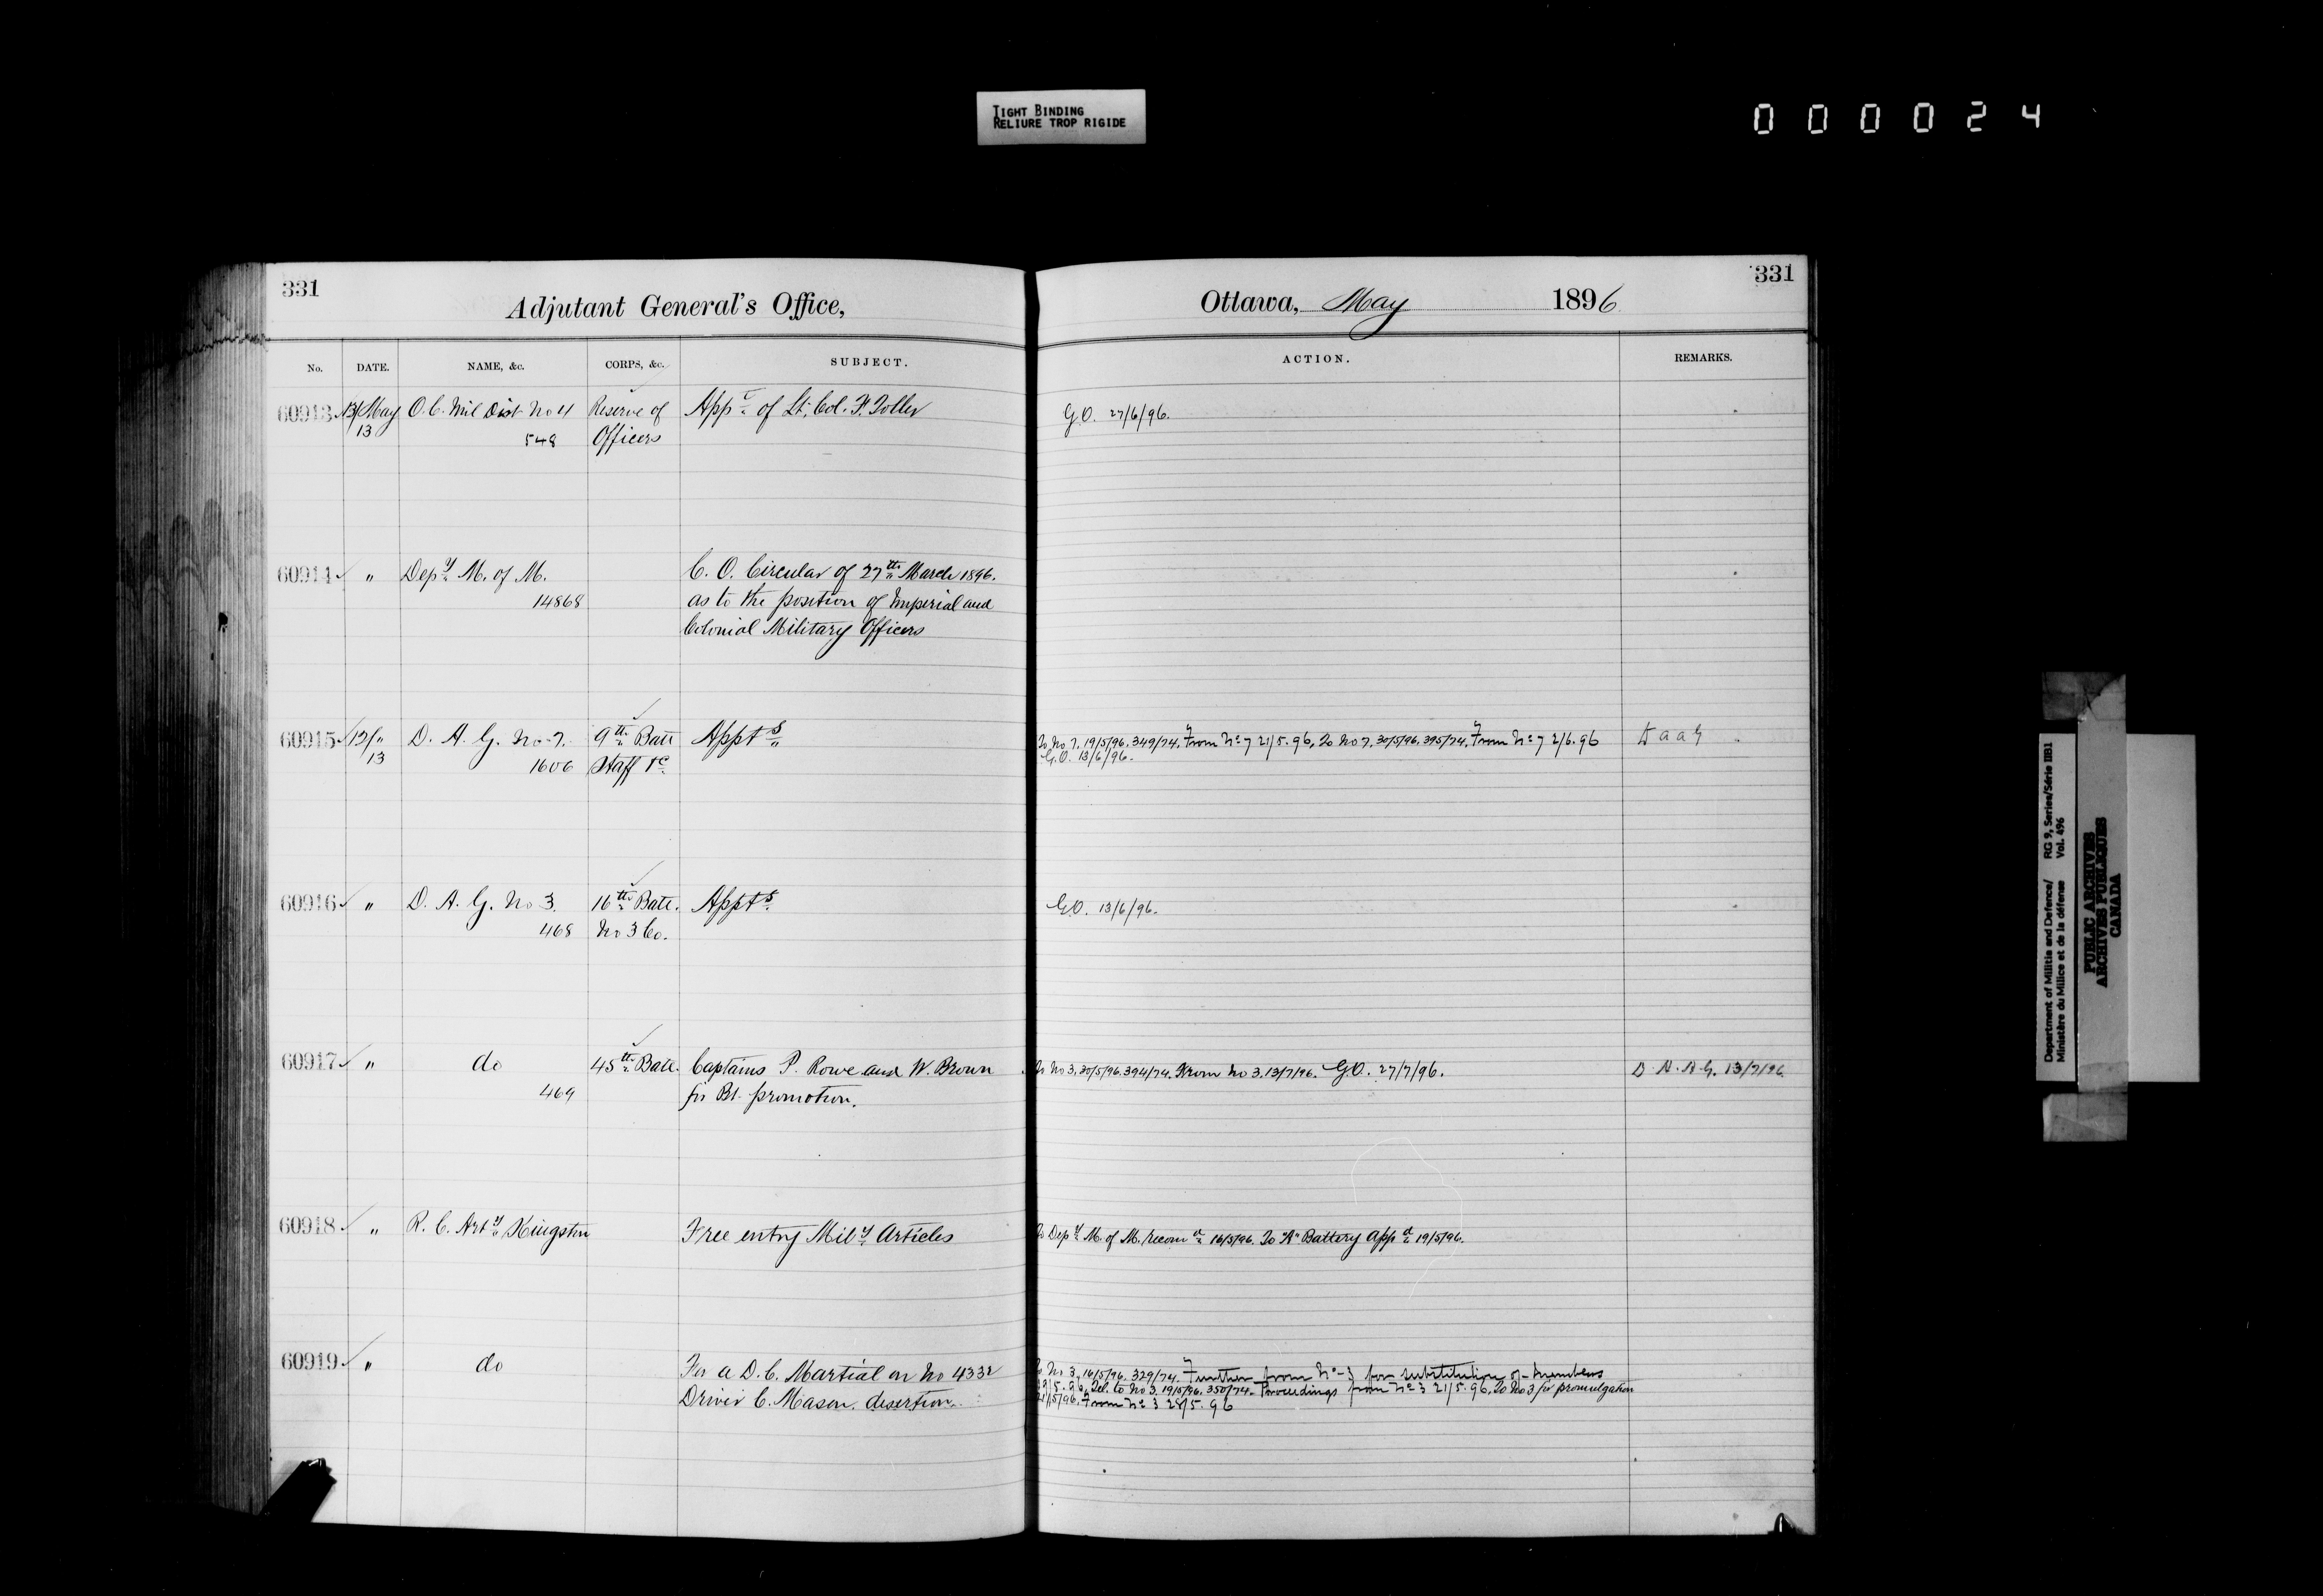 TIGHT BINDING
RELIURE TROP RIGIDE
000024
331
Adjutant General's Office,
Ottawa, May 1896
331
No. DATE. NAME, &c. CORPS, &c. SUBJECT. ACTION. REMARKS.
60913 13/May O.C. Mil Dist No 4 Reserve of Appt of Lt. Col. F. Toller G.O. 27/6/96.
13 548 Officers
60914 " Depy M. of M. C. O. Circular of 27th March 1896.
14868 as to the position of Imperial and
Colonial Military Officers
60915 12/" D. A. G. No 7. 9th Batt Appts To No 7, 19/5/96. 349/74. From No 7 21/5.96, To No 7, 30/5/96, 395/74. From No 7 2/6.96
13 1606 Staff &c. G.O. 13/6/96.
60916 " D. A. G. No 3. 16th Batt. Appts G.O. 13/6/96.
468 No 3 Co.
60917 " do 45th Batt. Captains P. Rowe and W. Brown To No 3, 30/5/96. 394/74. From No 3. 13/7/96. G.O. 27/7/96. 13/7/96
469 for Bt. promotion.
60918 " R. C. Arty Kingston Free entry Mily Articles To Depy M. of M. recomd 16/5/96. To "A" Battery appd 19/5/96.
60919 " do For a D. C. Martial on No 4332 To No 3, 16/5/96. 329/74. Further from No 3 for substitution of members
Driver C. Mason. desertion. 19/5.96, Tel. to No 3. 19/5/96. 350/74. Proceedings from No 3 21/5.96, To No 3 for promulgation
21/5/96. From No 3 28/5.96
Department of Militia and Defence/ RG 9, Series/Série IIB1
Ministère du Milice et de la défense Vol. 496
PUBLIC ARCHIVES
ARCHIVES PUBLIQUES
CANADA